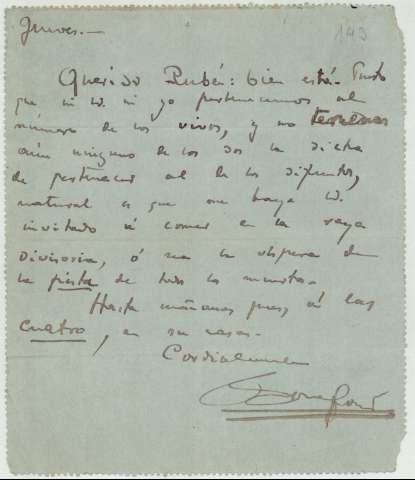 149
Jueves.—
Querido Rubén: bien está. Puesto
que ni V. ni yo pertenecemos al
número de los vivos, y no tenemos
aún ninguno de los dos la dicha
de pertenecer al de los difuntos,
natural es que me haya V.
invitado á comer en la raya
divisoria, ó sea la víspera de
la fiesta de todos los muertos.
Hasta mañana pues, á las
cuatro, en su casa.
Cordialmente
Bonafoux